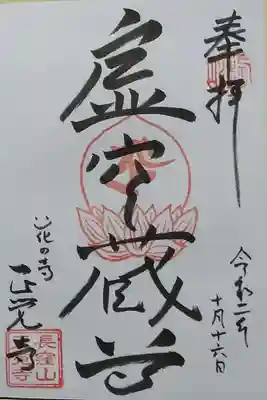 奉拝
令和二年
十月十六日
虚空蔵尊
花の寺
正覚寺
長窪山